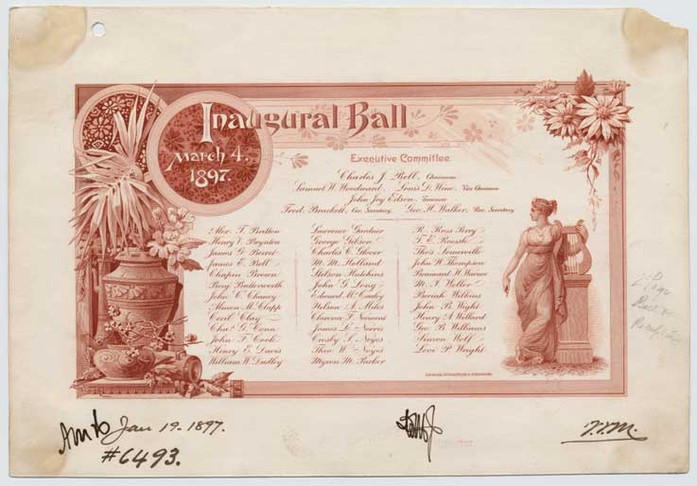 Inaugural Ball
March 4,
1897.
Executive Committee
Charles J. Bell, Chairman
Samuel W. Woodward, Louis D. Wine, Vice Chairmen
John Joy Edson, Treasurer
Fred. Brackett, Cor. Secretary, Geo. H. Walker, Rec. Secretary
Alex. T. Britton
Henry V. Boynton
James G. Berret
James E. Bell
Chapin Brown
Benj. Butterworth
John C. Chaney
Cecil Clay
John F. Cook
Henry E. Davis
William W. Dudley
Lawrence Gardner
George Gibson
Charles C. Glover
Stilson Hutchins
John G. Long
Edward McCauley
Nelson A. Miles
Clarence F. Norment
James L. Norris
Crosby S. Noyes
Theo. W. Noyes
Myron M. Parker
R. Ross Perry
T. E. Roessle
Thos. Somerville
John W. Thompson
Beriah Wilkins
John B. Wight
Henry A. Willard
Geo. B. Williams
Simon Wolf
Levi P. Wright
Jan 19. 1897.
#6493.